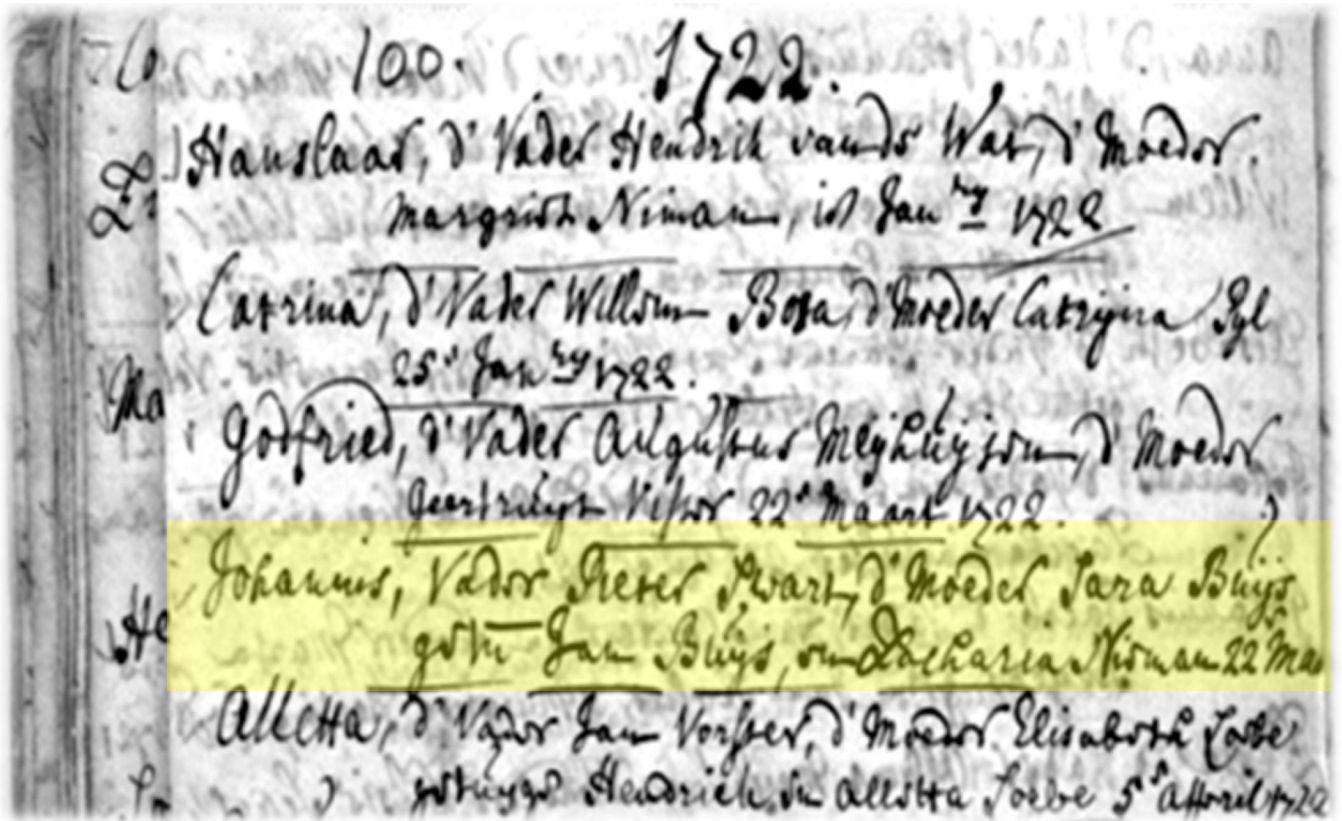 100. 1722.
Hanslaar, d' Vader Hendrik vande Wat, d' Moeder
Margrieth Niman, ist Jan ry 1722
Catrina, d' Vader Willem Bota, d' Moeder Catrijna Pyl
25' Jan ry 1722.
Godfried, d' Vader Augustus Meyhuijsen, d' Moeder
Geertruijt Visser 22' Maart 1722.
Johannes, Vader Pieter Swart, d' Moeder Sara Buijs
Jan Buijs, en Zacharia Niman 22 Maa
Alletta, d' Vader Jan Vorster, d' Moeder Elisabeth
Hendrick, en Alletta 5' 1722